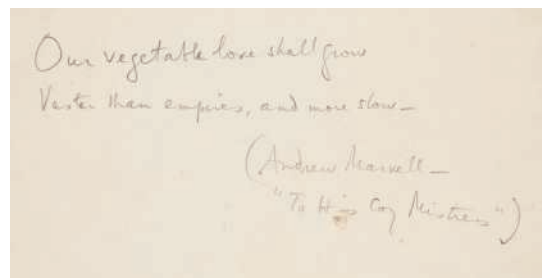 Our vegetable love shall grow
Vaster than empires, and more slow—
(Andrew Marvell—
"To His Coy Mistress")